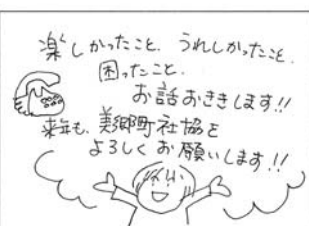 楽しかったこと、うれしかったこと、
困ったこと、
お話おききします!!
来年も、美郷町社協を
よろしくお願いします!!